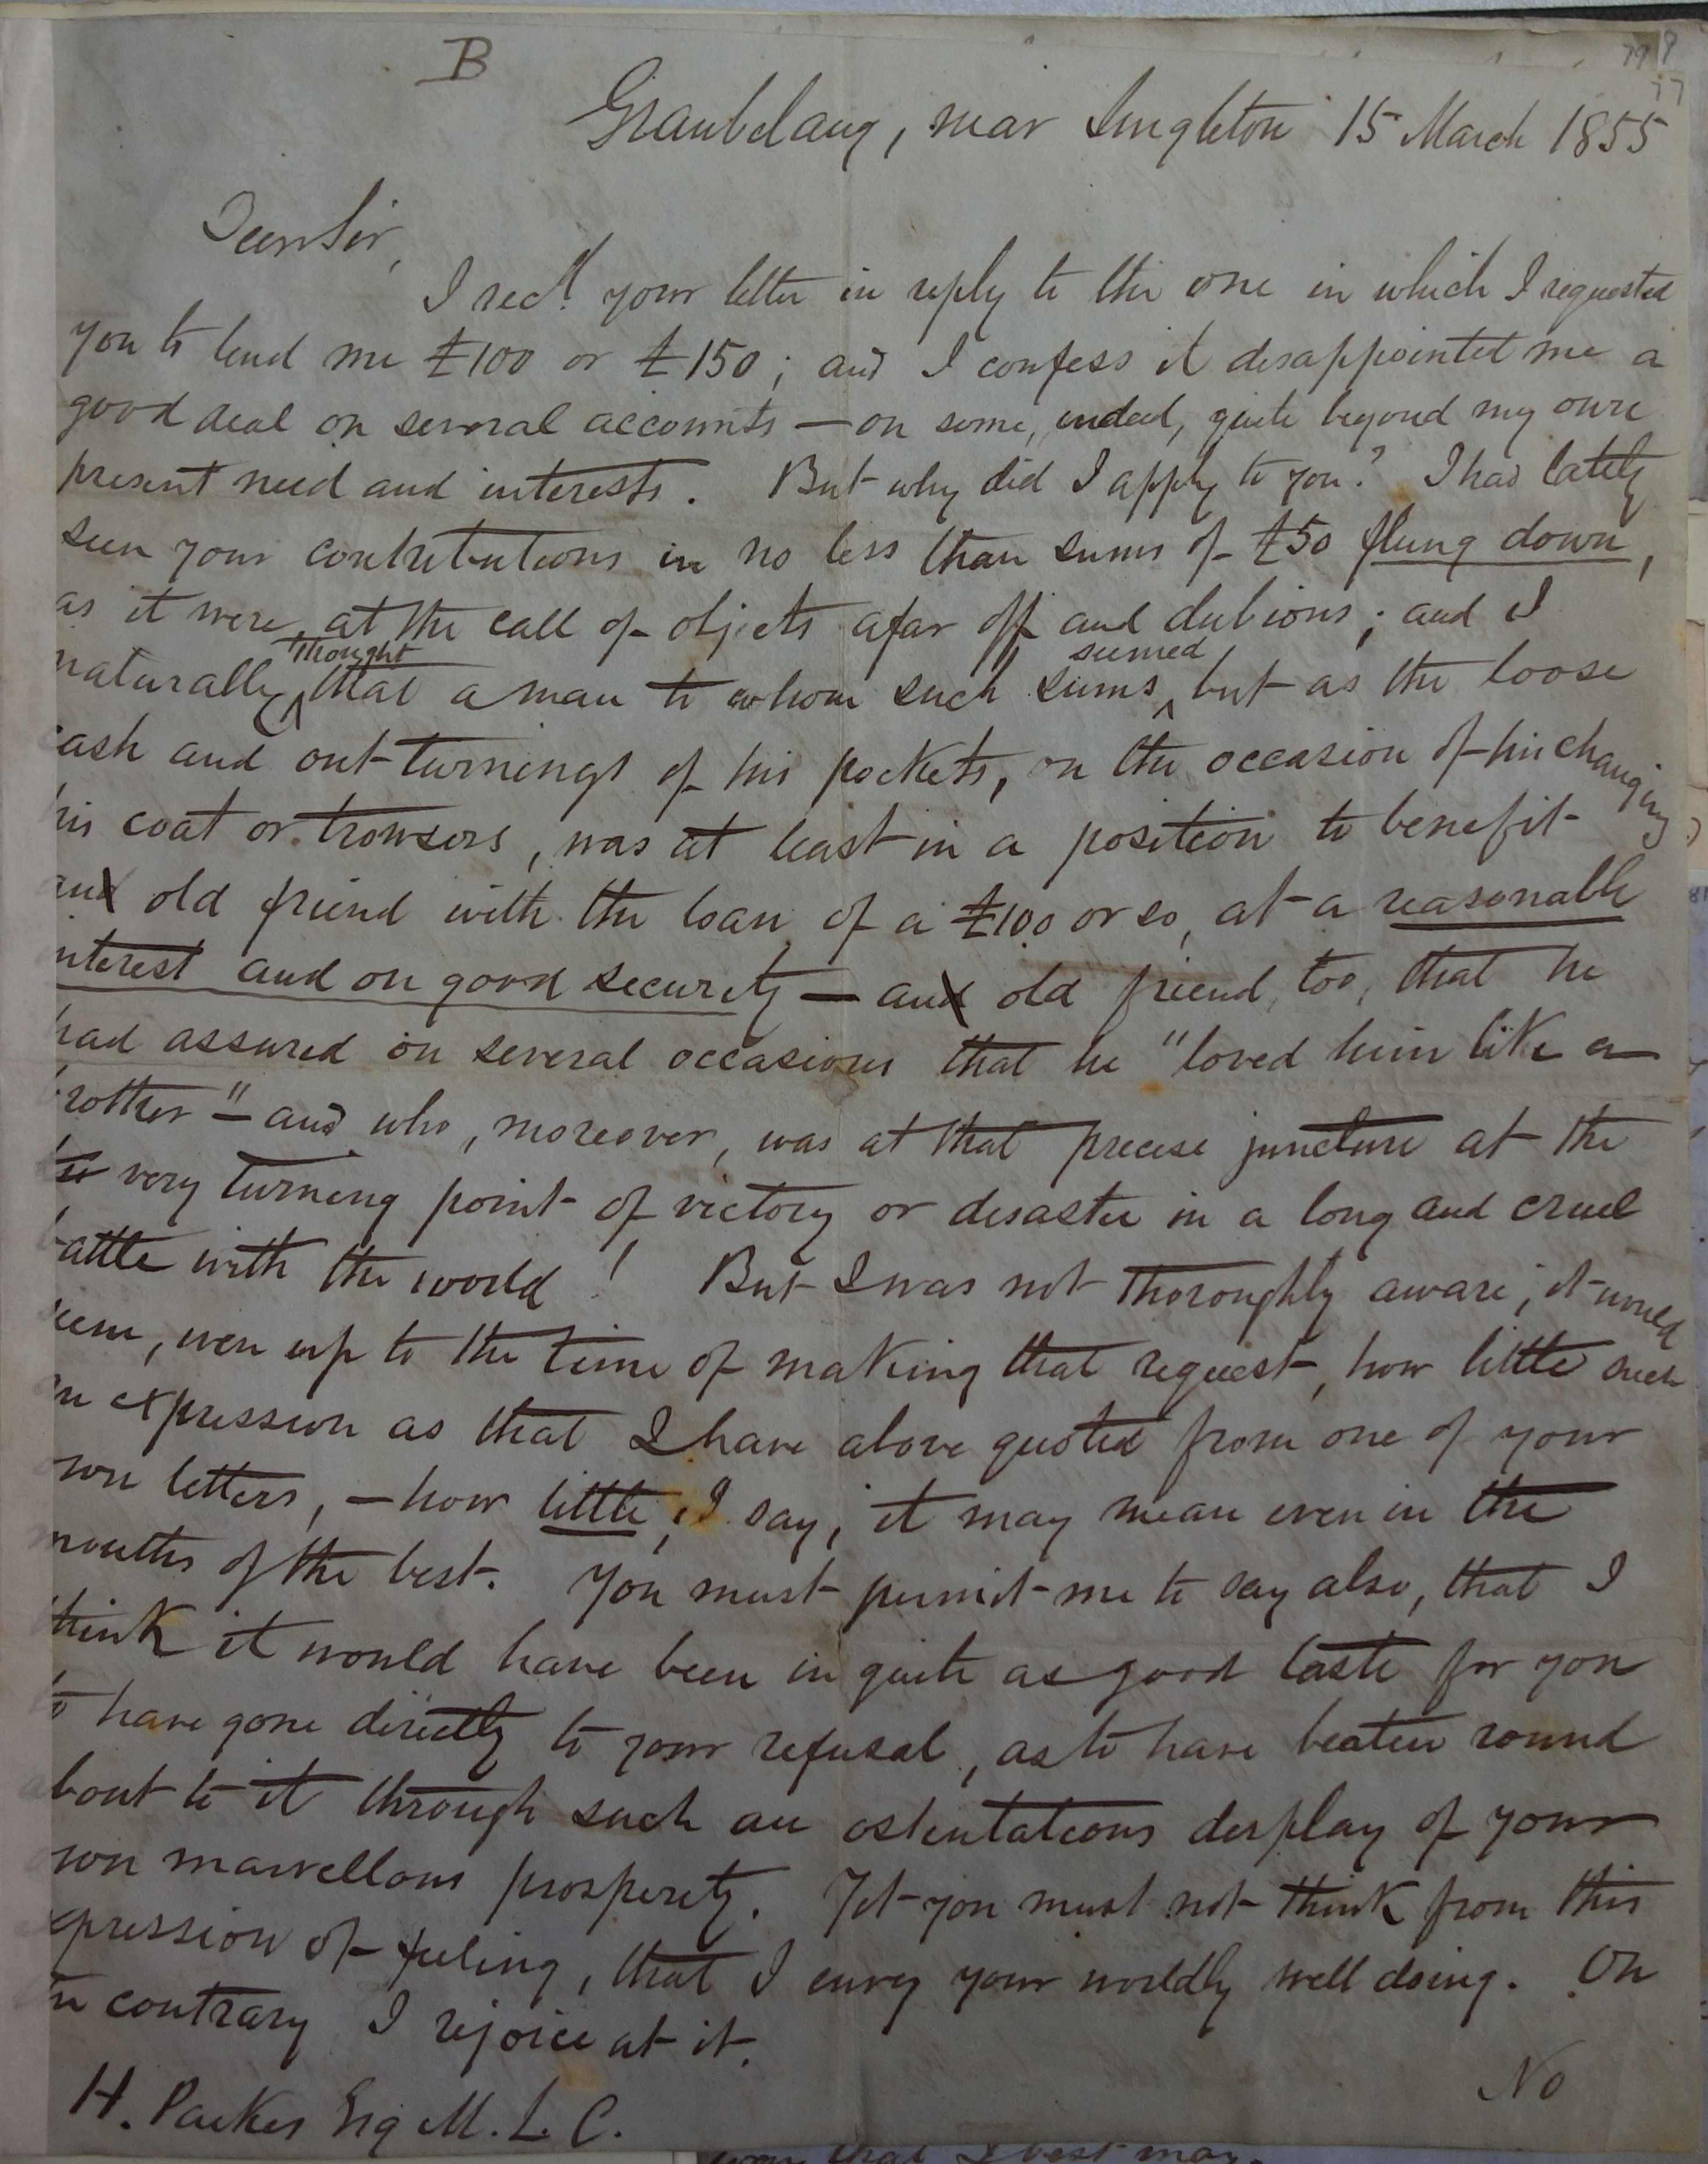 B
Graubelang, near Singleton 15 March 1855
Dear Sir,
I recd. your letter in reply to the one in which I requested
you to lend me £100 or £150; and I confess it disappointed me a
good deal on several accounts — on some, indeed, quite beyond my own
present need and interests. But why did I apply to you? I had lately
seen your contributions in no less than sums of £50 flung down,
as it were, at the call of objects afar off and dubious; and I
thought seemed
naturally that a man to whom such sums but as the loose
cash and out-turnings of his pockets, on the occasion of his changing
his coat or trowsers, was at least in a position to benefit
an old friend with the loan of a £100 or so, at a reasonable
interest and on good security — an old friend, too, that he
had assured on several occasions that he "loved him like a
brother" — and who, moreover, was at that precise juncture at the
very turning point of victory or disaster in a long and cruel
battle with the world! But I was not thoroughly aware, it would
seem, even up to the time of making that request, how little such
an expression as that I have above quoted from one of your
own letters, — how little, I say, it may mean even in the
mouths of the best. You must permit me to say also, that I
think it would have been in quite as good taste for you
to have gone directly to your refusal, as to have beaten round
about to it through such an ostentatious display of your
own marvellous prosperity. Yet you must not think from this
expression of feeling, that I envy your worldly well doing. On
the contrary I rejoice at it.
No
H. Parkes Esq M. L. C.
way that I best may.